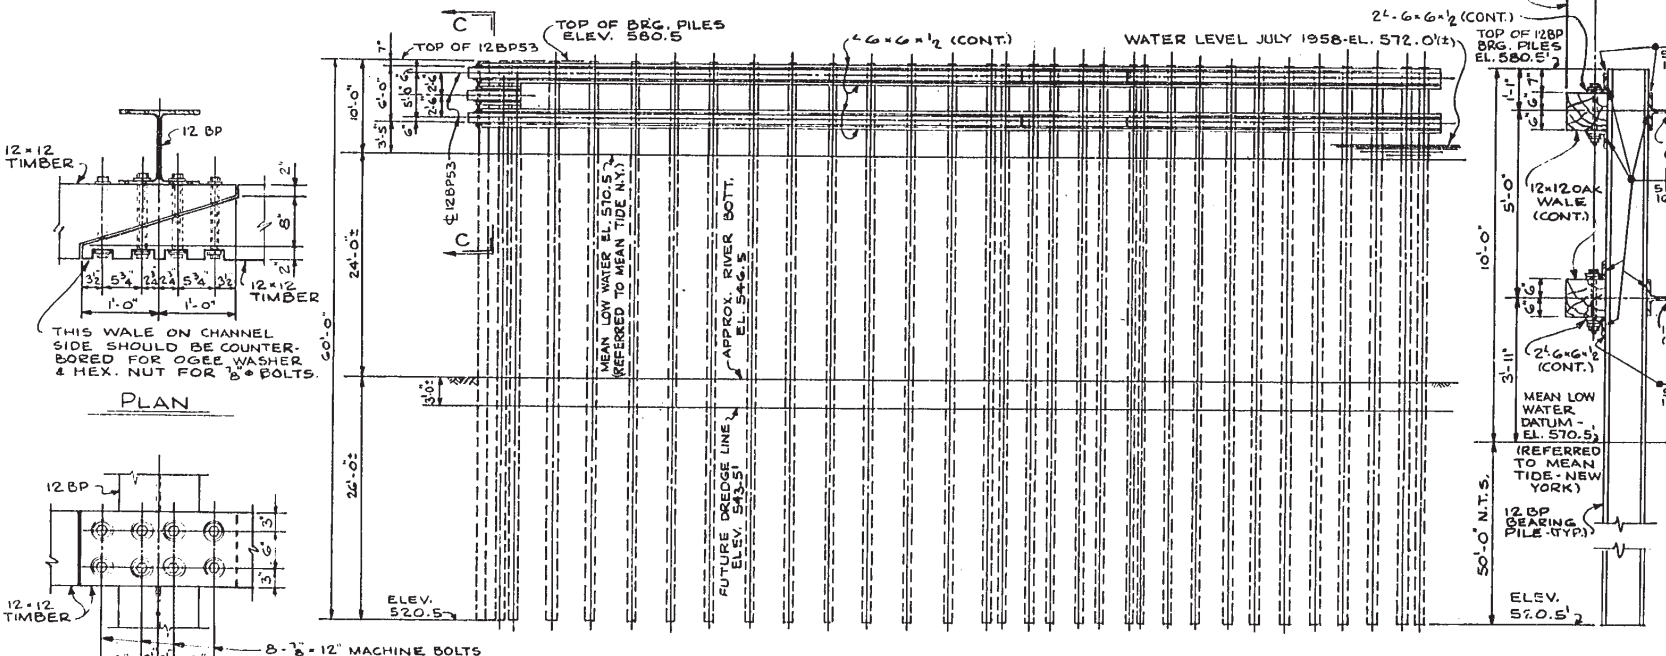 12 BP
12×12
TIMBER
2"
8"
2"
3½ 5¾" 2¼ 2¼ 5¾" 3½
1'-0" 1'-0"
12×12
TIMBER
THIS WALE ON CHANNEL
SIDE SHOULD BE COUNTER-
BORED FOR OGEE WASHER
& HEX. NUT FOR ⅞"⌀ BOLTS.
PLAN
12 BP
3"
6"
3"
12×12
TIMBER
8-⅞"×12" MACHINE BOLTS
C
TOP OF BRG. PILES
ELEV. 580.5
TOP OF 12BP53
7"
∠6×6×½ (CONT.)
WATER LEVEL JULY 1958-EL. 572.0'(±)
10'-0"
6'-0"
5'-0"
6"
2'-6"
2'-6"
3'-5"
6"
℄12BP53
C
60'-0"
24'-0"±
26'-0"±
3'-0"±
MEAN LOW WATER EL. 570.5
(REFERRED TO MEAN TIDE N.Y.)
APPROX. RIVER BOTT.
EL. 546.5
FUTURE DREDGE LINE
ELEV. 543.5'
ELEV.
520.5
2∠-6×6×½ (CONT.)
TOP OF 12BP
BRG. PILES
EL. 580.5'
1'-1"
7"
6"
6"
12×12 OAK
WALE
(CONT.)
5'-0"
10'-0"
6"
6"
2∠-6×6×½
(CONT.)
3'-11"
MEAN LOW
WATER
DATUM-
EL. 570.5'
(REFERRED
TO MEAN
TIDE-NEW
YORK)
12 BP
BEARING
PILE-(TYP.)
50'-0" N.T.S.
ELEV.
520.5'